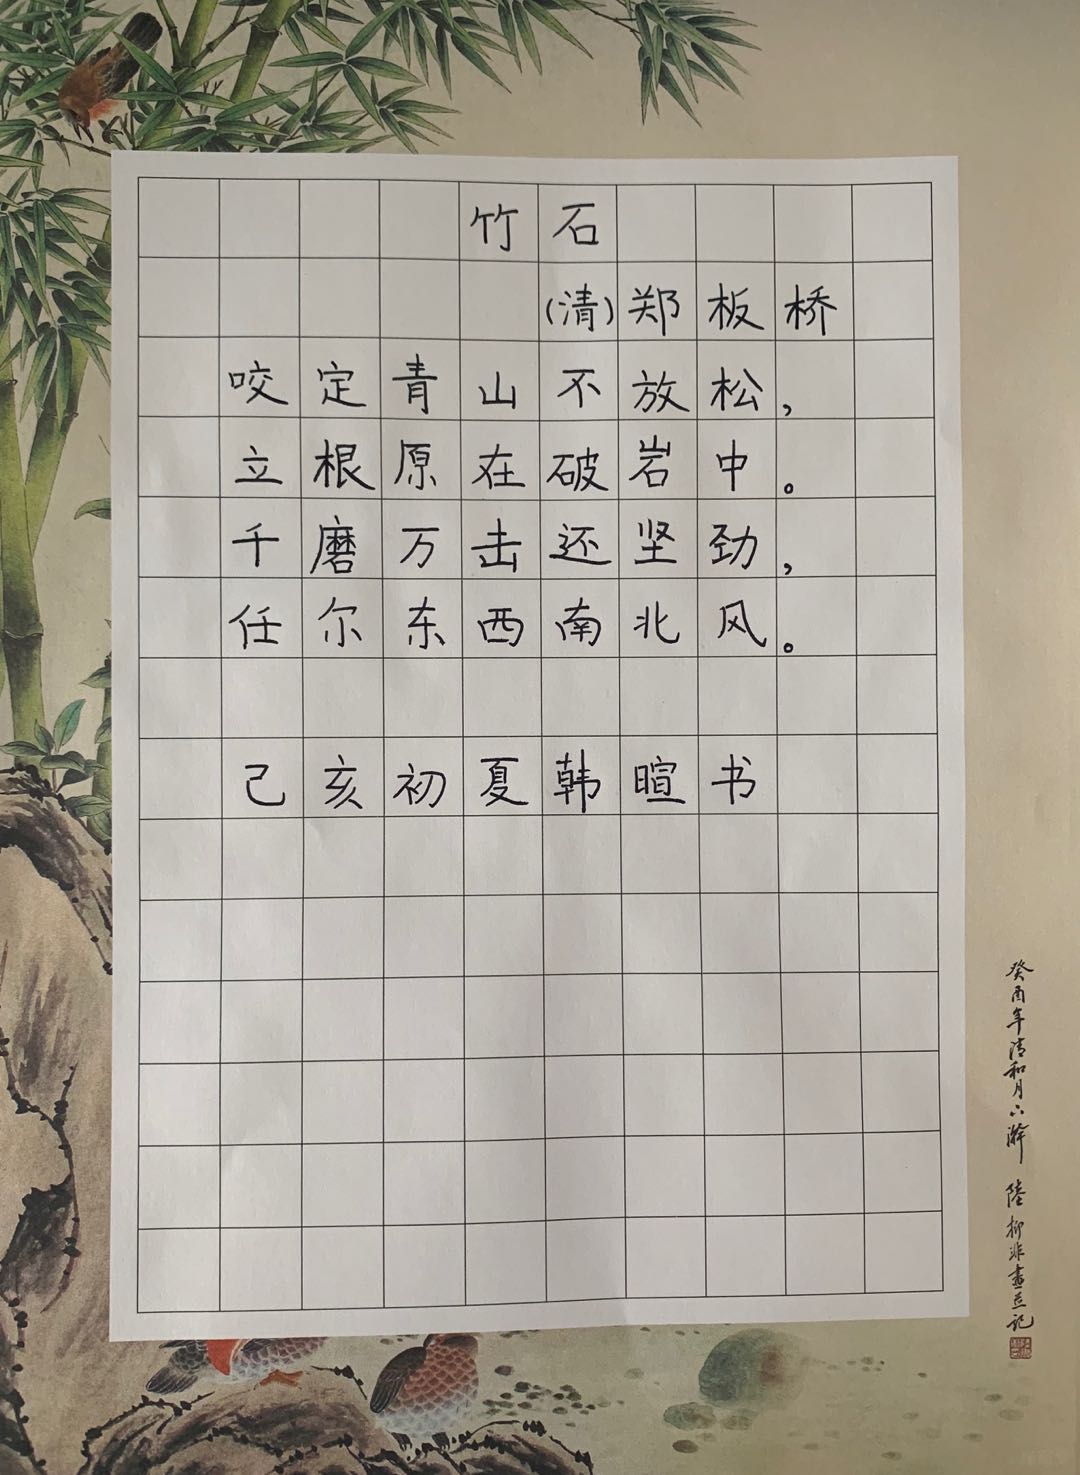 竹石
(清)郑板桥
咬定青山不放松，
立根原在破岩中。
千磨万击还坚劲，
任尔东西南北风。
己亥初夏韩暄书
癸酉年清和月六澣 陸抑非畫并记